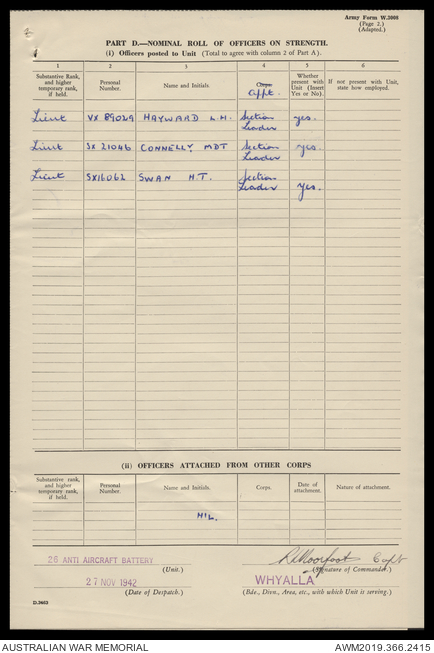 Army Form W.3008
(Page 2.)
(Adapted.)
PART D.—NOMINAL ROLL OF OFFICERS ON STRENGTH.
(i) Officers posted to Unit (Total to agree with column 2 of Part A).
1 2 3 4 5 6
Substantive Rank, and higher temporary rank, if held. Personal Number. Name and Initials. Corps. Appt. Whether present with Unit (Insert Yes or No). If not present with Unit, state how employed.
Lieut VX 89029 HAYWARD L.H. Section Leader yes.
Lieut SX 21046 CONNELLY MDT Section Leader yes.
Lieut SX16062 SWAN H.T. Section Leader yes.
(ii) OFFICERS ATTACHED FROM OTHER CORPS
Substantive rank, and higher temporary rank, if held. Personal Number. Name and Initials. Corps. Date of attachment. Nature of attachment.
NIL.
26 ANTI AIRCRAFT BATTERY
(Unit.)
27 NOV 1942
(Date of Despatch.)
Capt
(Signature of Commander.)
WHYALLA
(Bde., Divn., Area, etc., with which Unit is serving.)
D.3662
AUSTRALIAN WAR MEMORIAL
AWM2019.366.2415